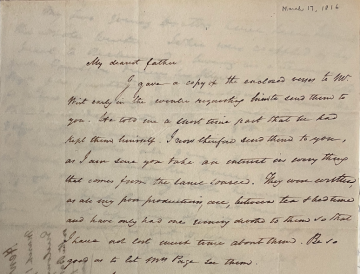 March 17, 1816
My dearest father
I gave a copy of the enclosed verses to Mr
West early in the winter requesting him to send them to
you. He told me a short time past that he had
kept them himself. I now therefore send them to you,
as I am sure you take an interest in every thing
that comes from the same source. They were written
as all my poor productions are, between tea & bed time
and have only had one evening devoted to them so that
I have not lost much time about them. Be so
good as to let Mrs Page see them.